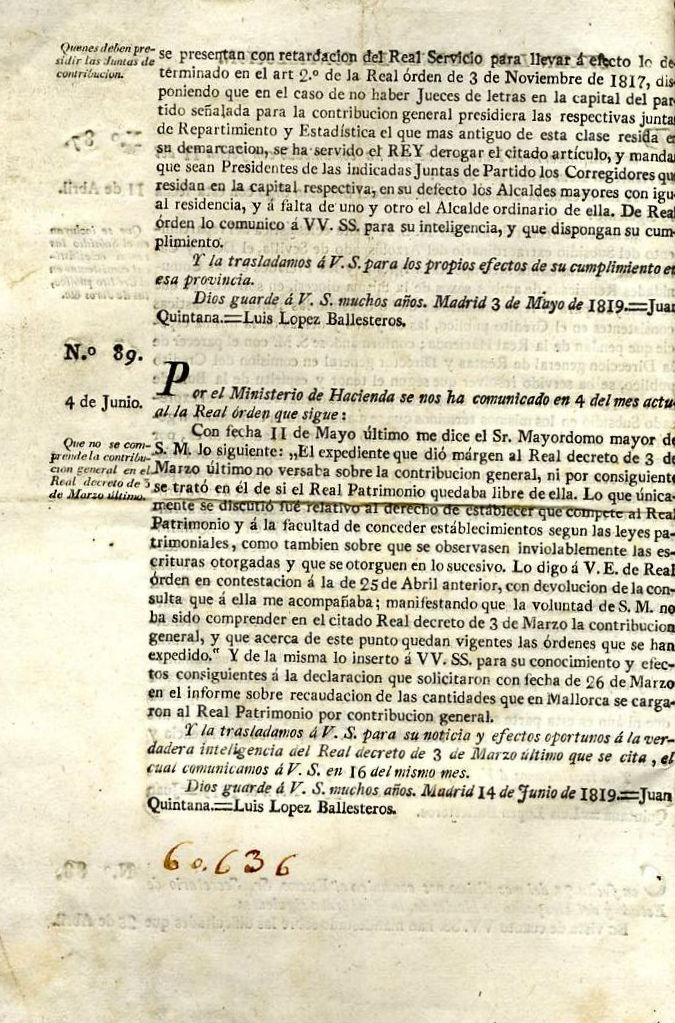 Quenes deben pre-
sidir las Juntas de
contribucion.
se presentan con retardacion del Real Servicio para llevar á efecto lo de
términado en el art 2.º de la Real órden de 3 de Noviembre de 1817, dis
poniendo que en el caso de no haber Jueces de letras en la capital del par
tido señalada para la contribucion general presidiera las respectivas junta
de Repartimiento y Estadística el que mas antiguo de esta clase resida e
su demarcacion, se ha servido el REY derogar el citado artículo, y manda
que sean Presidentes de las indicadas Juntas de Partido los Corregidores qu
residan en la capital respectiva, en su defecto los Alcaldes mayores con igu
al residencia, y á falta de uno y otro el Alcalde ordinario de ella. De Rea
órden lo comunico á VV. SS. para su inteligencia, y que dispongan su cum
plimiento.
Y la trasladamos á V. S. para los propios efectos de su cumplimiento e
esa provincia.
Dios guarde á V. S. muchos años. Madrid 3 de Mayo de 1819.=Jua
Quintana.=Luis Lopez Ballesteros.
N.º 89.
4 de Junio.
Que no se com-
prende la contribu-
cion general en el
Real decreto de 3
de Marzo último.
Por el Ministerio de Hacienda se nos ha comunicado en 4 del mes actu
al la Real órden que sigue:
Con fecha 11 de Mayo último me dice el Sr. Mayordomo mayor de
S. M. lo siguiente: „El expediente que dió márgen al Real decreto de 3 de
Marzo último no versaba sobre la contribucion general, ni por consiguiente
se trató en él de si el Real Patrimonio quedaba libre de ella. Lo que única-
mente se discutió fué relativo al derecho de establecer que compete al Real
Patrimonio y á la facultad de conceder establécimientos segun las leyes pa-
trimoniales, como tambien sobre que se observasen inviolablemente las es-
crituras otorgadas y que se otorguen en lo sucesivo. Lo digo á V. E. de Real
órden en contestacion á la de 25 de Abril anterior, con devolucion de la con-
sulta que á ella me acompañaba; manifestando que la voluntad de S. M. no
ha sido comprender en el citado Real decreto de 3 de Marzo la contribucion
general, y que acerca de este punto quedan vigentes las órdenes que se han
expedido." Y de la misma lo inserto á VV. SS. para su conocimiento y efec-
tos consiguientes á la declaracion que solicitaron con fecha de 26 de Marzo
en el informe sobre recaudacion de las cantidades que en Mallorca se carga-
ron al Real Patrimonio por contribucion general.
Y la trasladamos á V. S. para su noticia y efectos oportunos á la ver-
dadera inteligencia del Real decreto de 3 de Marzo último que se cita, el
cual comunicamos á V. S. en 16 del mismo mes.
Dios guarde á V. S. muchos años. Madrid 14 de Junio de 1819.=Juan
Quintana.=Luis Lopez Ballesteros.
60.636